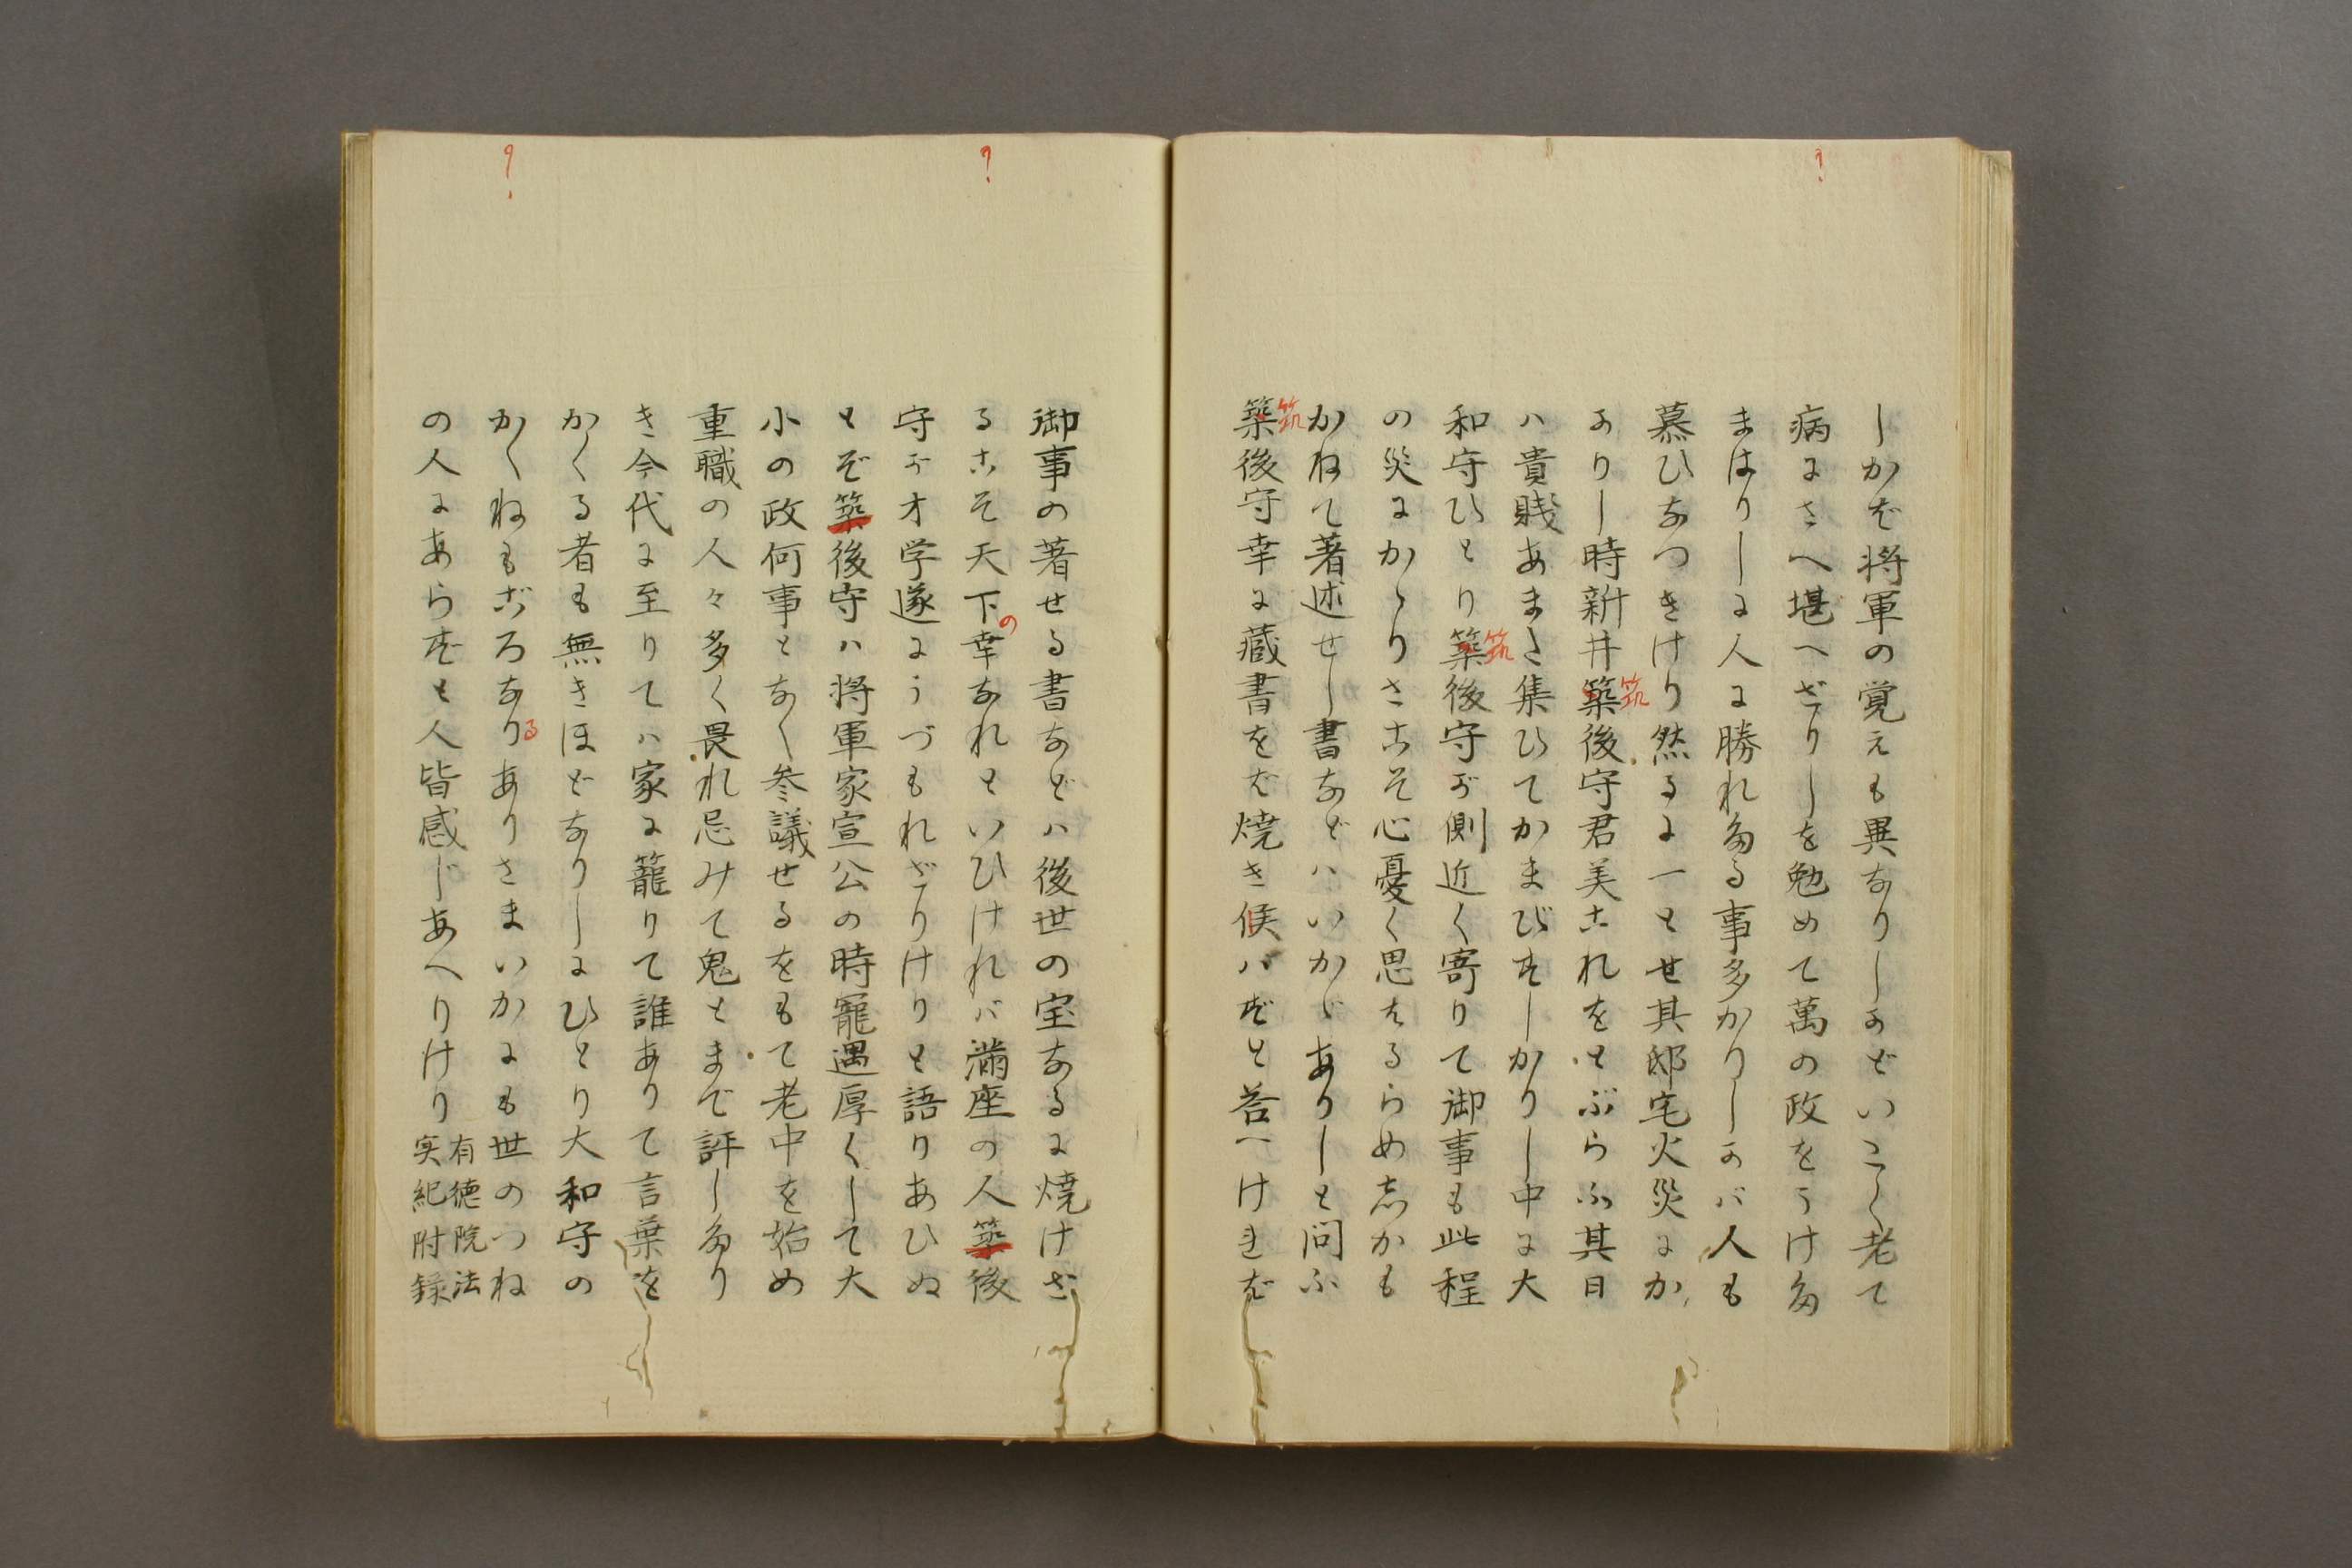 しかば将軍の覚えも異なりしかどいこく老て
病にさへ堪へざりしを勉めて萬の政をうけ給
まはりしに人に勝れたる事多かりしかバ人も
慕ひなつきけり然るに一とせ其邸宅火災にか
かりし時新井築後守君美これをとぶらふ其日
ハ貴賤あまた集ひてかまびすしかりし中に大
和守ひとり築後守が側近く寄りて御事も此程
の災にかゝりさこそ心憂く思はるらめしかも
かねて著述せし書などハいかゞありしと問ふ
築後守幸に蔵書をば焼き候ハずと答へければ
御事の著せる書などハ後世の宝なるに焼けざ
るこそ天下の幸なれといひければ満座の人築後
守が才学遂にうづもれざりけりと語りあひぬ
とぞ築後守ハ将軍家宣公の時寵遇厚くして大
小の政何事となく参議せるをもて老中を始め
重職の人々多く畏れ忌みて鬼とまで評したり
き今代に至りてハ家に籠りて誰ありて言葉を
かくる者も無きほどなりしにひとり大和守の
かくねもごろなりるありさまいかにも世のつね
の人にあらずと人皆感じあへりけり
有徳院法
実紀附録
筑
筑
筑